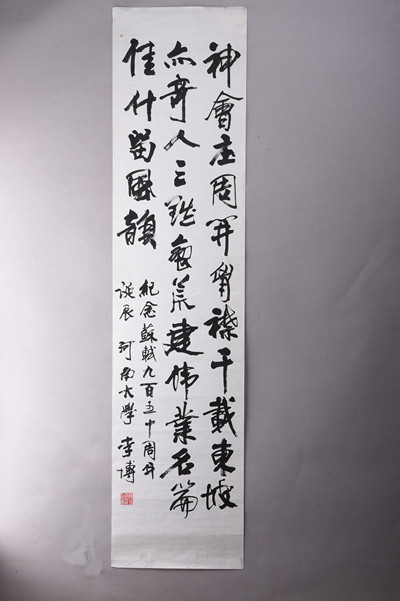 神會庄周開胸襟千載東坡
亦奇人三荒建偉業名篇
佳什留韻
紀念蘇軾九百五十周年
誕辰 河南大學 李博